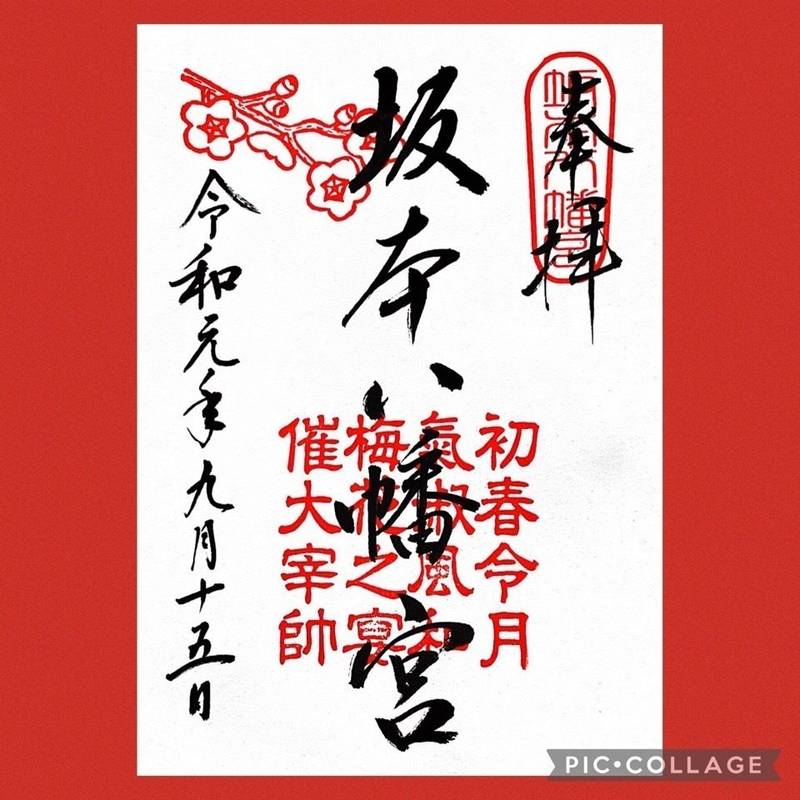 奉拝
坂本八幡宮
初春令月
氣淑風和
梅花之宴
催大宰帥
令和元年九月十五日
PIC•COLLAGE